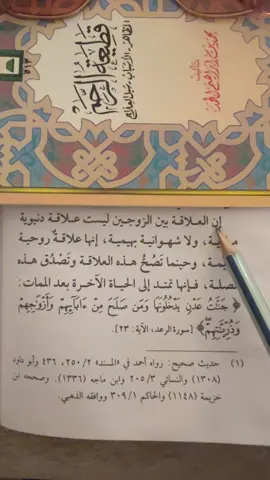 قطيعة الرحم
المظاهر - الأسباب - سبل العلاج
تأليف
محمد بن إبراهيم الحمد
إن العلاقة بين الزوجين ليست علاقة دنيوية
ولا شهوانية بهيمية، إنها علاقة روحية
وحينما تَصْحُّ هذه العلاقة وتَصْدُق هذه
الصلة، فإنها تمتد إلى الحياة الآخرة بعد الممات:
﴿جَنَّٰتُ عَدْنٍ يَدْخُلُونَهَا وَمَن صَلَحَ مِنْ ءَابَآئِهِمْ وَأَزْوَٰجِهِمْ
وَذُرِّيَّٰتِهِمْ﴾ [سورة الرعد، الآية: ٢٣].
(١) حديث صحيح: رواه أحمد في «المسند» ٢/ ٢٥٠، ٤٣٦ وأبو داود
(١٣٠٨) والنسائي ٣/ ٢٠٥ وابن ماجه (١٣٣٦) وصححه ابن
خزيمة (١١٤٨) والحاكم ١/ ٣٠٩ ووافقه الذهبي.